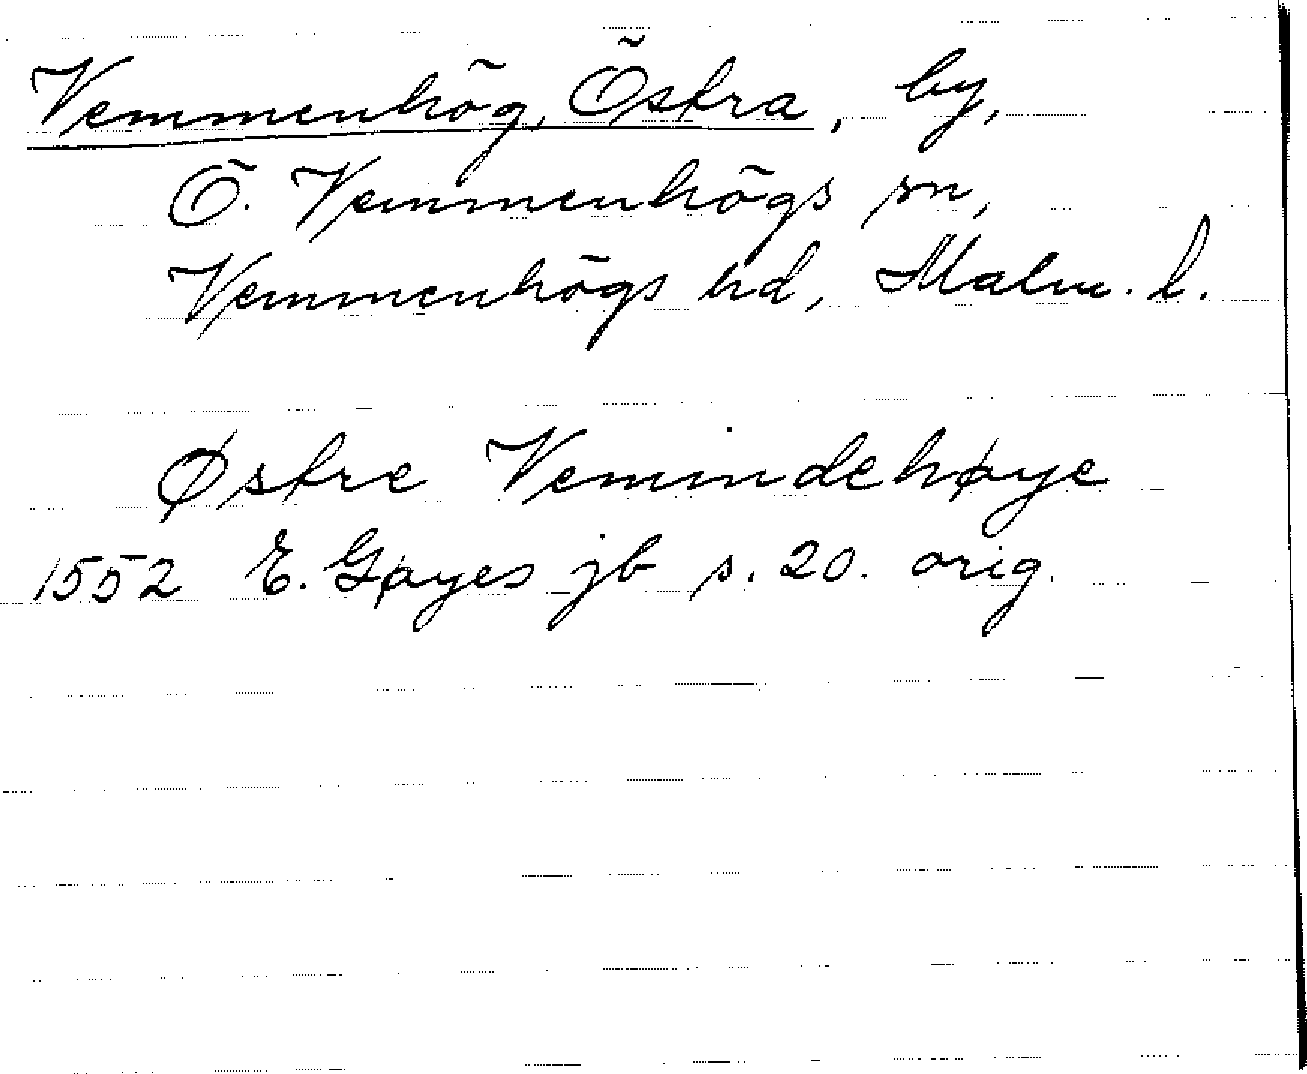 Vemmenhög, Östra, by,
Ö. Vemmenhögs sn,
Vemmenhögs hd, Malm. l.
Østre Vemmdehøye
1552 E. Gøyes jb s. 20. orig.